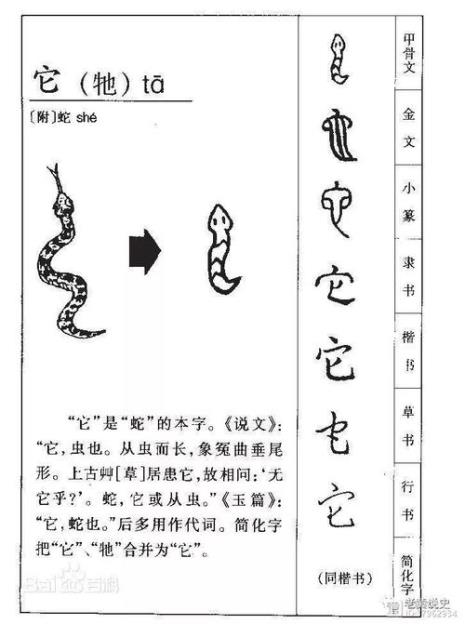 它（牠）tā
〔附〕蛇 shé
“它”是“蛇”的本字。《说文》：
“它，虫也。从虫而长，象冤曲垂尾
形。上古艸[草]居患它，故相问：‘无
它乎？’。蛇，它或从虫。”《玉篇》：
“它，蛇也。”后多用作代词。简化字
把“它”、“牠”合并为“它”。
甲骨文
金文
小篆
它
隶书
它
楷书
它
草书
它
行书
（同楷书）
简化字
Bai百科